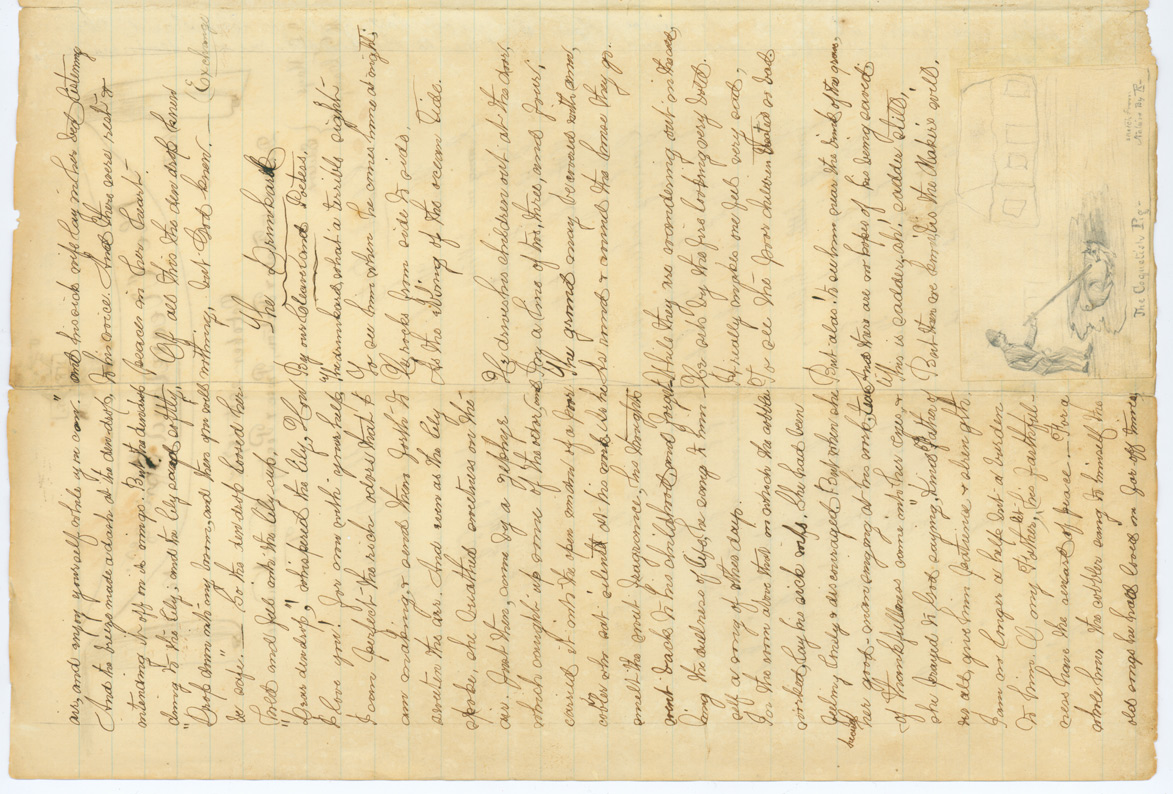 air, and enjoy yourself while you can."
And the breeze made a dash at the dewdrop,
intending it off on its wings. But the dewdrop
clung to the lily; and the lily said softly,
"Drop down into my bosom, and then you will
be safe." So the dewdrop loosed her
hold and fell into the lily cup.
"Dear dewdrop", whispered the lily, "How
I love you! For now with your help
I am perfect - the rich odors that I
am making, & send them forth to
sweeten the air. And even as the lily
spoke, she breathed sweetness on the
air. Just then, came by a zephyr
which caught up some of the odor, and
carried it into the open window of a poor
cobbler who sat silently at his work. As he
smelt the sweet fragrance, his thoughts
went back to his childhood and forget-
ting the dullness of life, he sang to him-
self a song of other days.
In the room above that in which the cobbler
worked, lay his sick wife. She had been
feeling lonely & discouraged. But when she heard
her good-man singing at his work, tears
of thankfulness came into her eyes, &
she prayed to God saying, "Kind Father of
us all, give him patience & strength.
I am no longer a help but a burden
to him. O my Father, let his faithful-
ness have the reward of peace. — For a
whole hour, the cobbler sang to himself the
old songs he had loved in far off times
and his sick wife lay in her bed listening
to his voice. And there were rest &
peace in her heart.
Of all this the dew drop knew
nothing, but God knew. — Exchange
The Drunkard
By our Cleaveland Peters.
The drunkard, what a terrible sight
To see him when he comes home at night;
He rocks from side to side.
As the rolling of the ocean tide.
He drives his children out at the door,
By a time of two, three, and four;
The ground may be covered with snow,
But around & around the house they go.
While they are wandering out in the cold,
He sets by the fire looking very bold.
It really makes one feel very sad,
To see the poor children treated so bad.
But alas! to see him near the brink of the grave,
And there are no hopes of his being saved
This is sadder, ah! sadder still,
But then we know it is the Maker's will.
The Coquelin Pg-